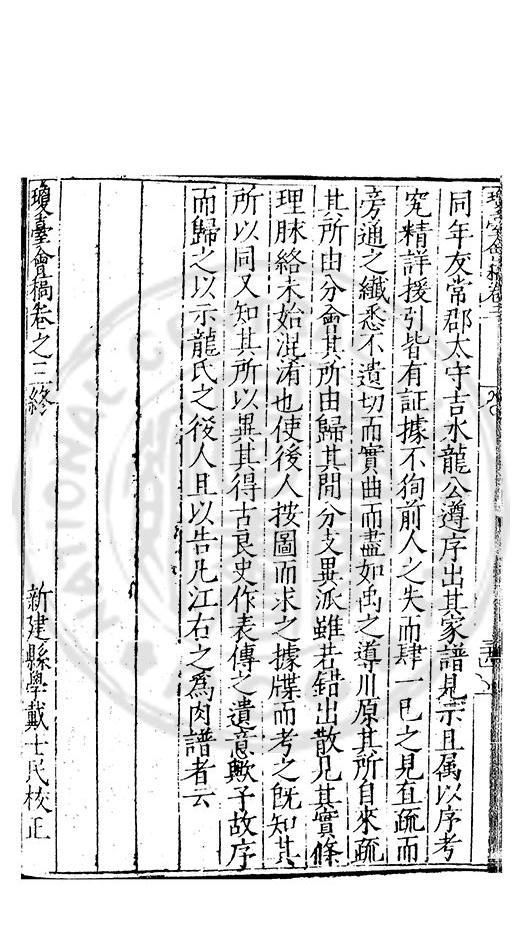 同年友常郡太守吉水龍公遵序出其家譜見示且属以序考
究精詳援引皆有証據不狥前人之失而肆一已之見直疏而
旁通之纎悉不遺切而實曲而盡如禹之導川原其所自來疏
其所由分會其所由歸其間分支異派雖若錯出散見其實條
理脉絡未始混淆也使後人按圖而求之據牒而考之旣知其
所以同又知其所以異其得古良史作表傳之遺意歟予故序
而歸之以示龍氏之後人且以告凡江右之爲肉譜者云
瓊臺會稿卷之三終
新建縣學戴士民校正
NATIONAL CENTRAL